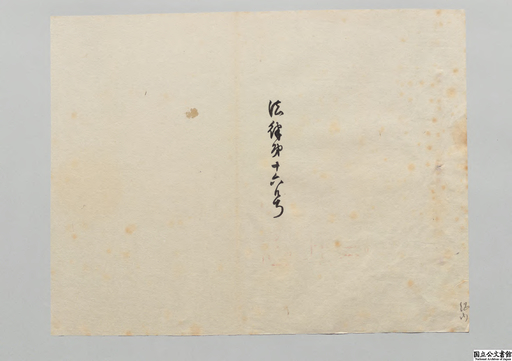 法律第十六号
国立公文書館
National Archives of Japan